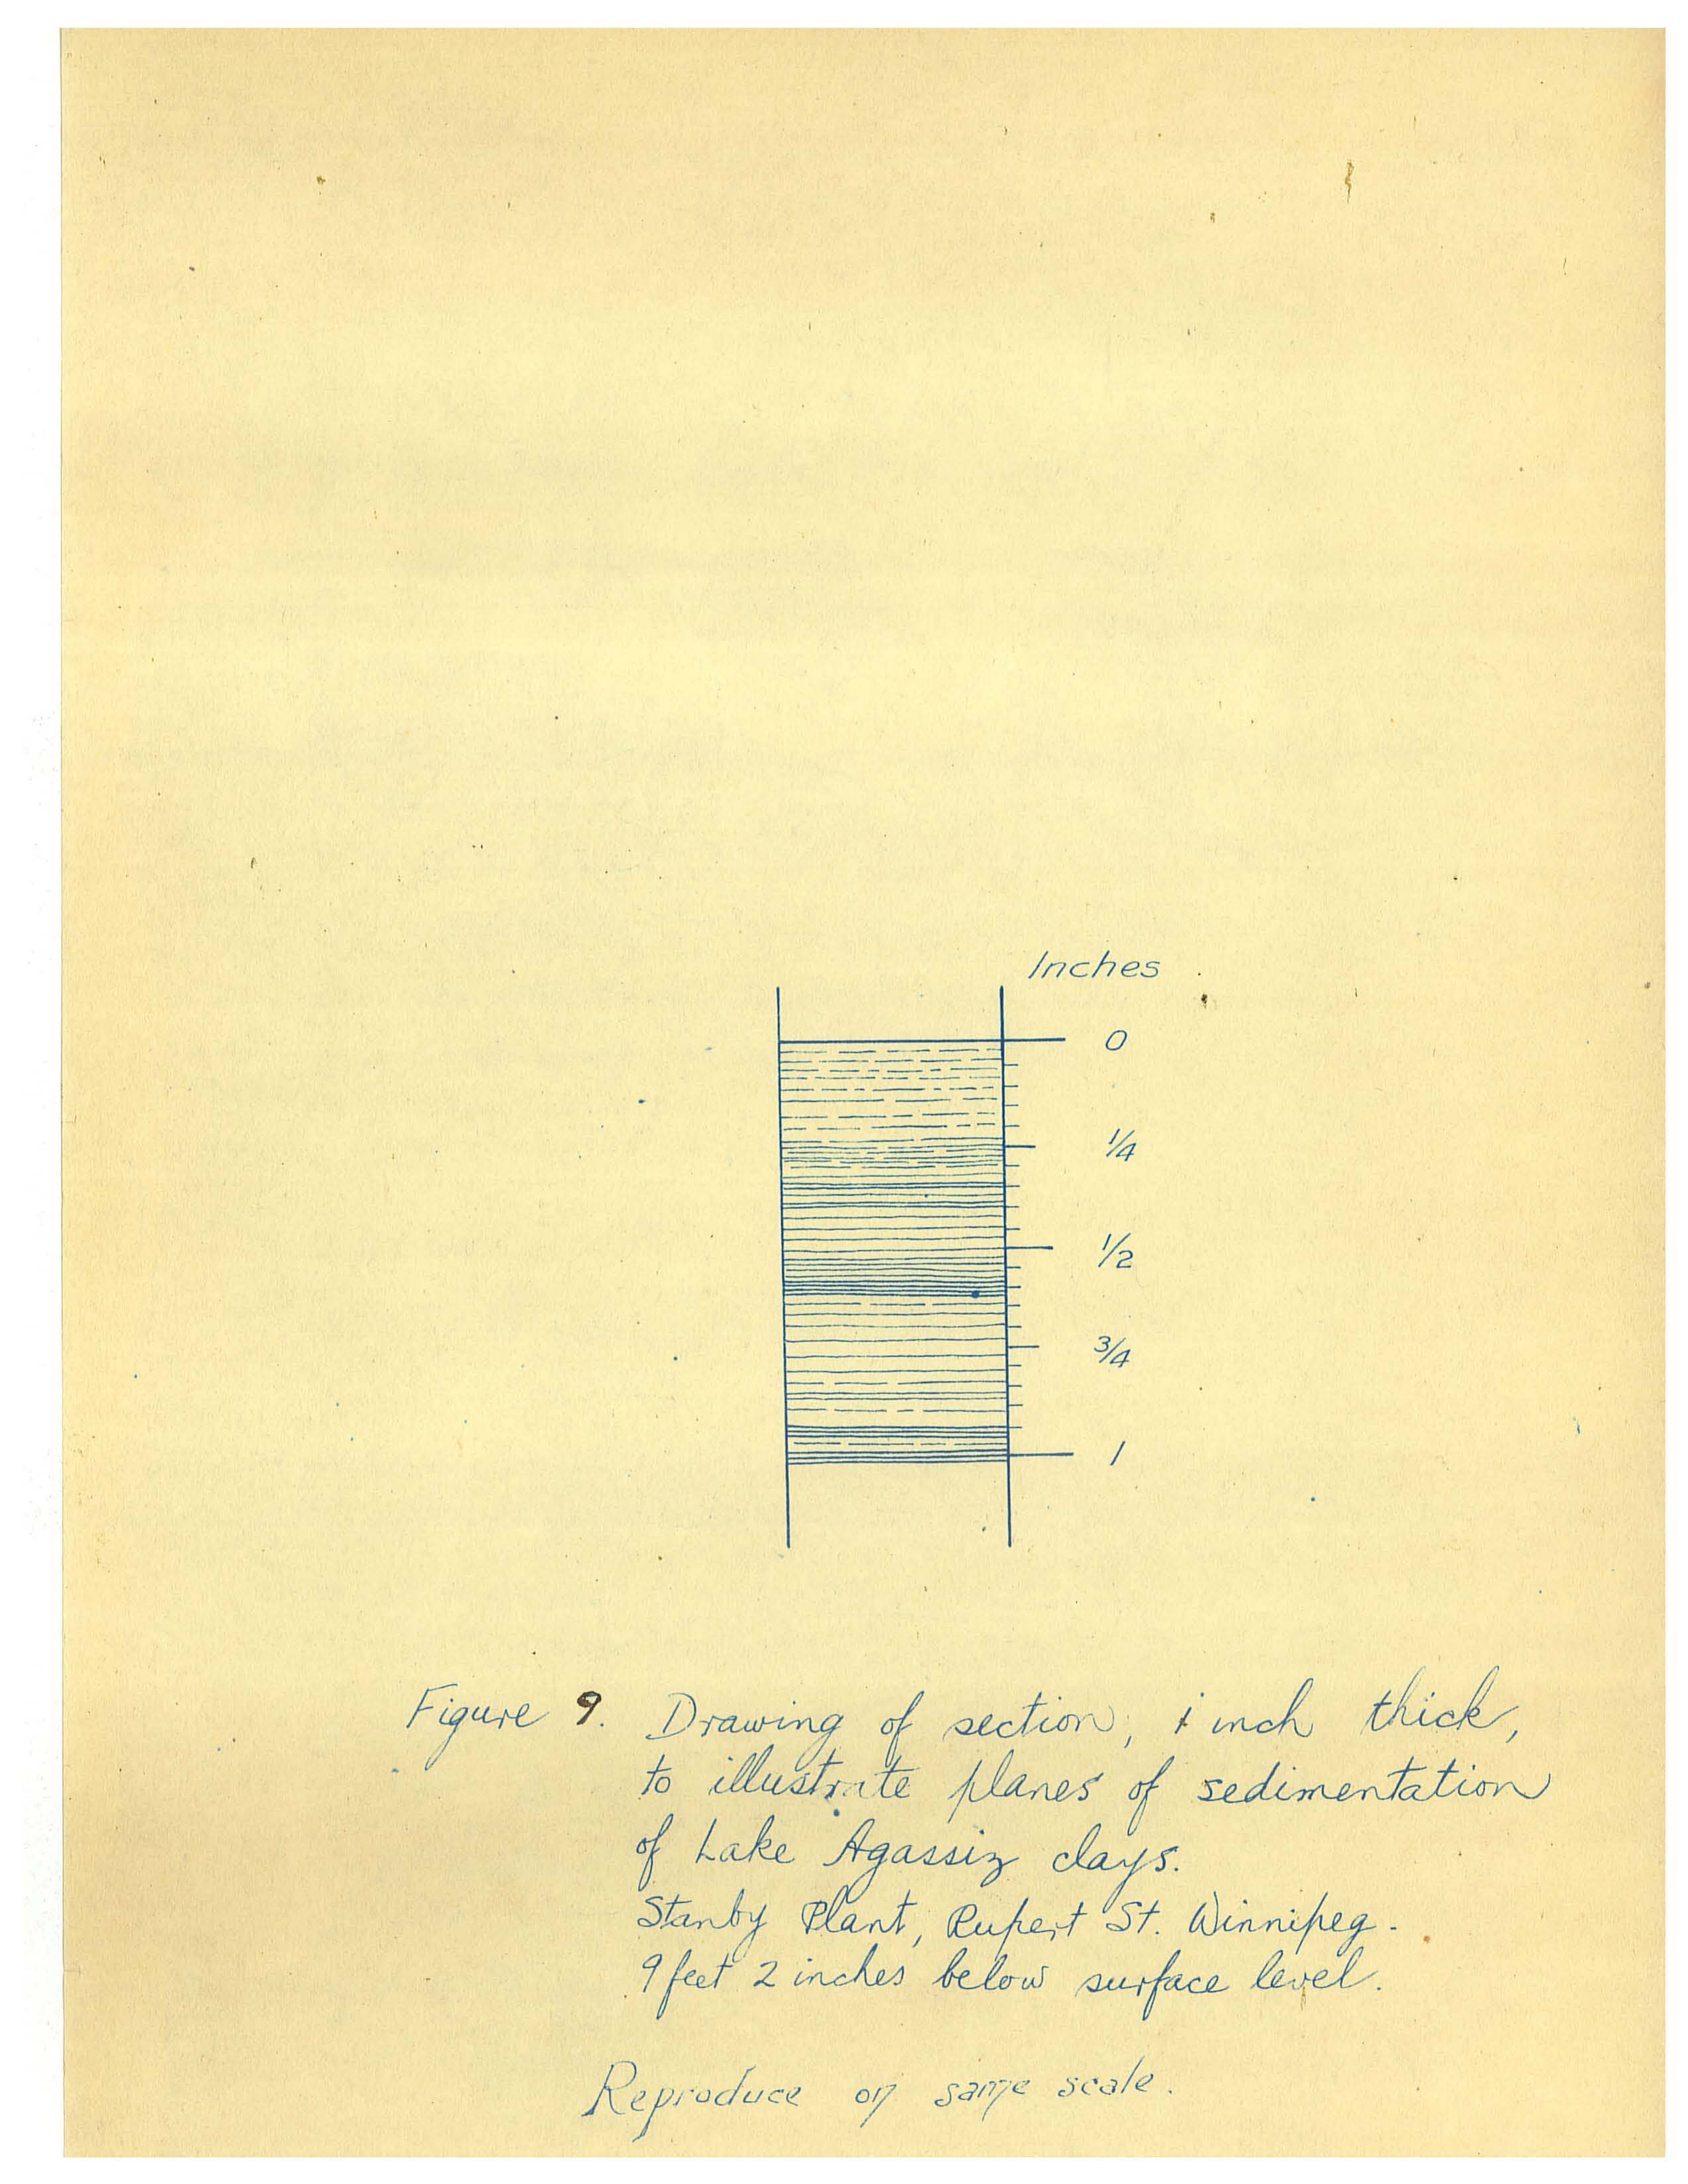 Inches
0
1/4
1/2
3/4
1
Figure 9. Drawing of section, 1 inch thick,
to illustrate planes of sedimentation
of Lake Agassiz clays.
Stanby Plant, Rupert St. Winnipeg.
9 feet 2 inches below surface level.
Reproduce on same scale.